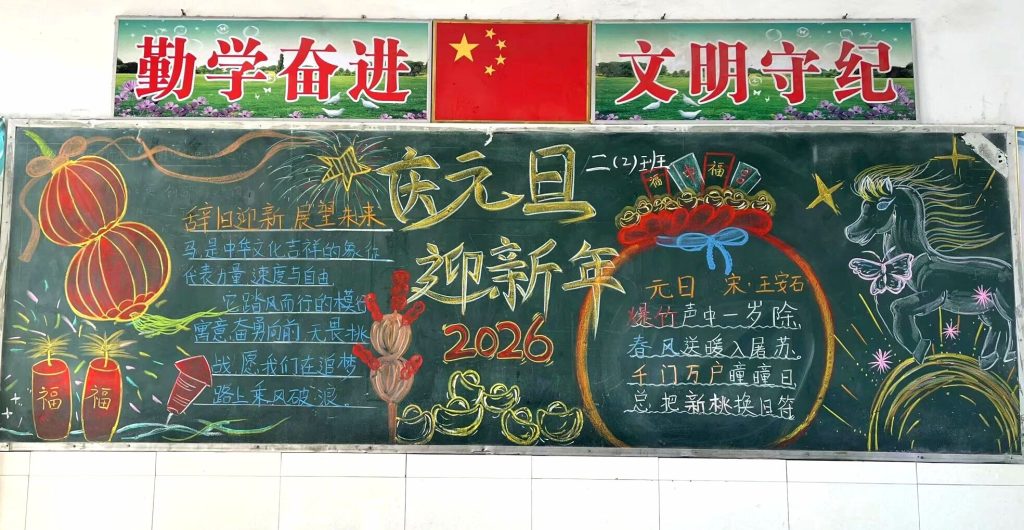 勤学奋进
文明守纪
庆元旦
二(2)班
迎新年
2026
辞旧迎新 展望未来
马是中华文化吉祥的象征
代表力量 速度与自由
它踏风而行的模样
寓意奋勇向前 无畏挑
战 愿我们在追梦
路上乘风破浪。
福
福
福
福
元日 宋·王安石
爆竹声中一岁除,
春风送暖入屠苏。
千门万户曈曈日
总把新桃换旧符